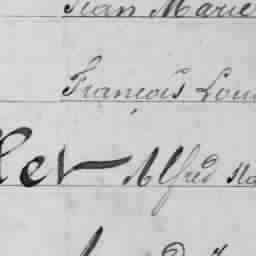 Jean Marie
François Lou
let Alfred Na